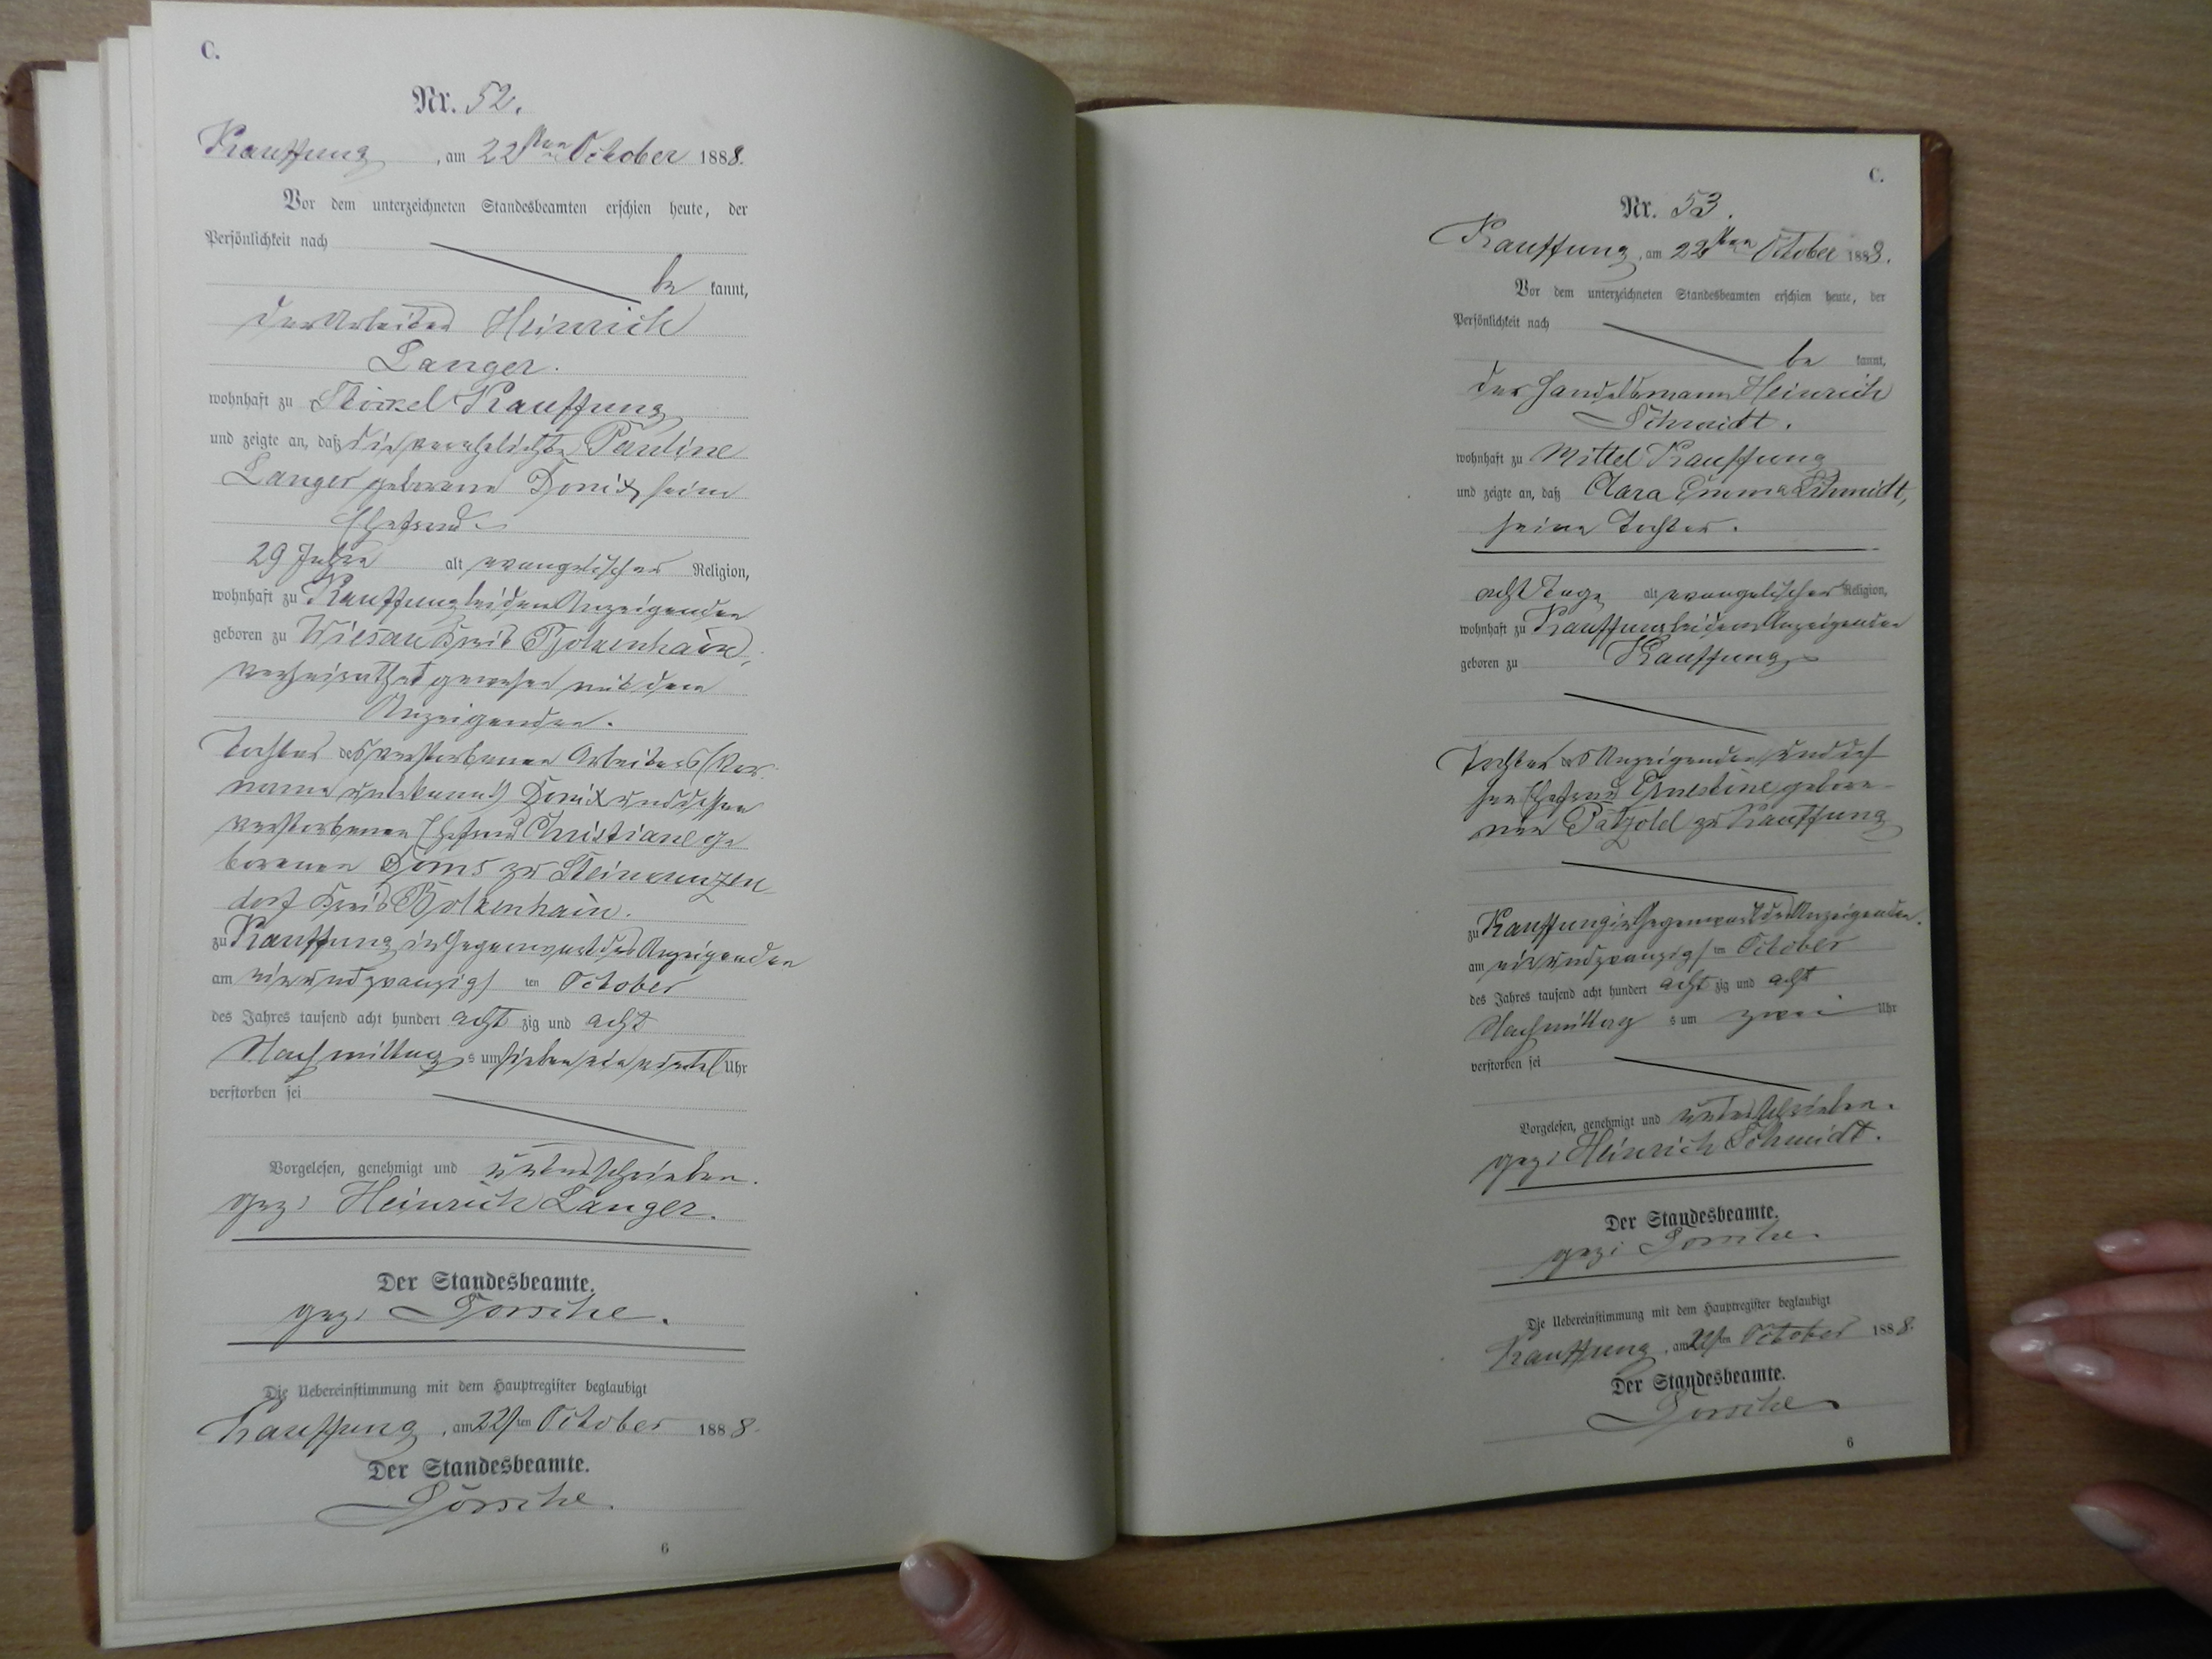 C.
Nr. 52.
Kauffung, am 22sten October 1888.
Vor dem unterzeichneten Standesbeamten erschien heute, der
Persönlichkeit nach
be kannt,
der Arbeiter Heinrich
Langer.
wohnhaft zu Kauffung
und zeigte an, daß die verehelichte Pauline
Langer geborene seine
Ehefrau
29 Jahre alt evangelischer Religion,
wohnhaft zu Kauffung bei dem Anzeigenden
geboren zu Wiesau Kreis Bolkenhain,
verheirathet gewesen mit dem
Anzeigenden.
Tochter des verstorbenen Arbeiters (Vor
name unbekannt) und dessen
verstorbenen Ehefrau Christiane ge
borenen zu Steinkunzen
dorf Kreis Bolkenhain.
zu Kauffung in Gegenwart des Anzeigenden
am ein und zwanzigsten October
des Jahres tausend acht hundert acht zig und acht
Nachmittags um sieben ein viertel Uhr
verstorben sei
Vorgelesen, genehmigt und unterschrieben.
gez: Heinrich Langer.
Der Standesbeamte.
gez:
Die Uebereinstimmung mit dem Hauptregister beglaubigt
Kauffung, am 22sten October 1888.
Der Standesbeamte.
6
C.
Nr. 53.
Kauffung, am 22sten October 1888.
Vor dem unterzeichneten Standesbeamten erschien heute, der
Persönlichkeit nach
be kannt,
der Handelsmann Heinrich
Schmidt.
wohnhaft zu Mittel Kauffung
und zeigte an, daß Clara Emma Schmidt,
seine Tochter.
acht Tage alt evangelischer Religion,
wohnhaft zu Kauffung bei dem Anzeigenden
geboren zu Kauffung
Tochter des Anzeigenden und des
sen Ehefrau Ernestine gebore-
nen Pätzold zu Kauffung
zu Kauffung in Gegenwart des Anzeigenden
am ein und zwanzigsten October
des Jahres tausend acht hundert acht zig und acht
Nachmittags um zwei Uhr
verstorben sei
Vorgelesen, genehmigt und unterschrieben.
gez: Heinrich Schmidt.
Der Standesbeamte.
gez:
Die Uebereinstimmung mit dem Hauptregister beglaubigt
Kauffung, am 22sten October 1888.
Der Standesbeamte.
6